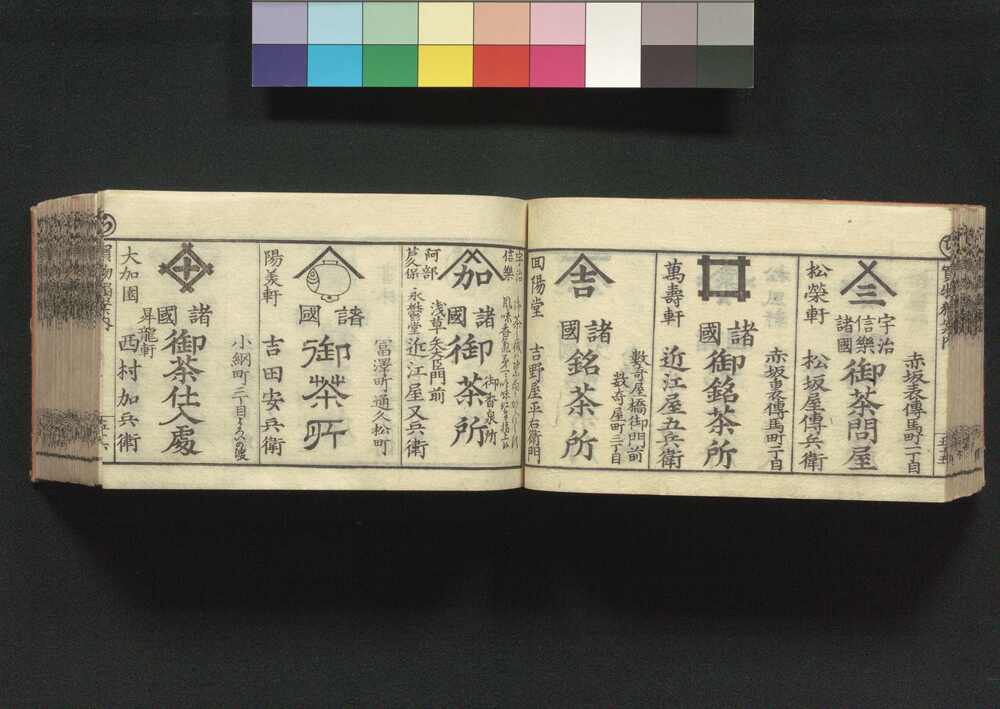 赤坂表傳馬町二丁目
宇治
信樂
諸國
御茶問屋
松榮軒 松坂屋傳兵衛
赤坂裏傳馬町二丁目
諸國
御銘茶所
萬壽軒 近江屋五兵衛
數寄屋橋御門前
數寄屋町三丁目
吉
諸國
銘茶所
回陽堂 吉野屋平右衛門
宇治
信樂
加
諸國
御茶所
御香泉所
浅草矢大臣門前
近江屋又兵衛
阿部
芦久保
冨澤町通久松町
諸國
御茶所
陽美軒 吉田安兵衛
小網町三丁目
諸國
御茶仕入處
昇龍軒
大加園 西村加兵衛